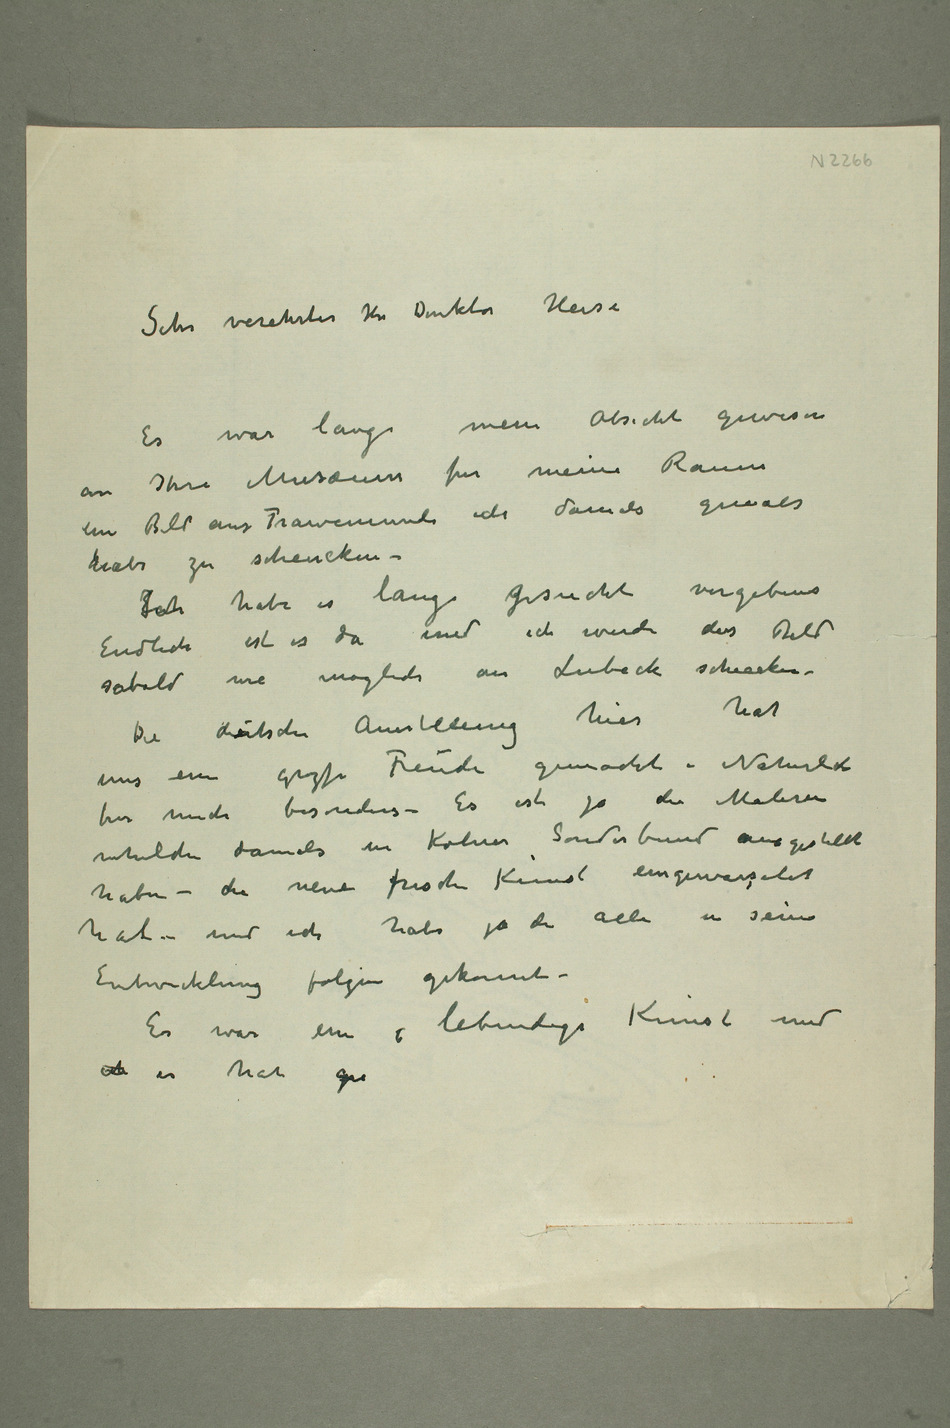 N 2266
Sehr verehrter Hr Direktor Heise
Es war lange mein Absicht gewesen
an Ihre Musæum für meine Raum
ein Bild aus Travemünde ich damals gemalt
habe zu schencken –
Ich habe es lange gesucht vergebens
Endlich ist es da und ich werde das Bild
sobald wie möglich an Lübeck schicken –
Die deutsche Ausstellung hier hat
uns ein große Freude gemacht – Natürlich
für mich besonders – Es ist ja die Maleren
welche damals in Kølner Sonderbund ausgestellt
haben – die neue frische Kunst eingewurzelet
hat – und ich habe ja die alle in seine
Entwicklung folgen gekonnt –
Es war ein lebendige Kunst und
ich es hat ge